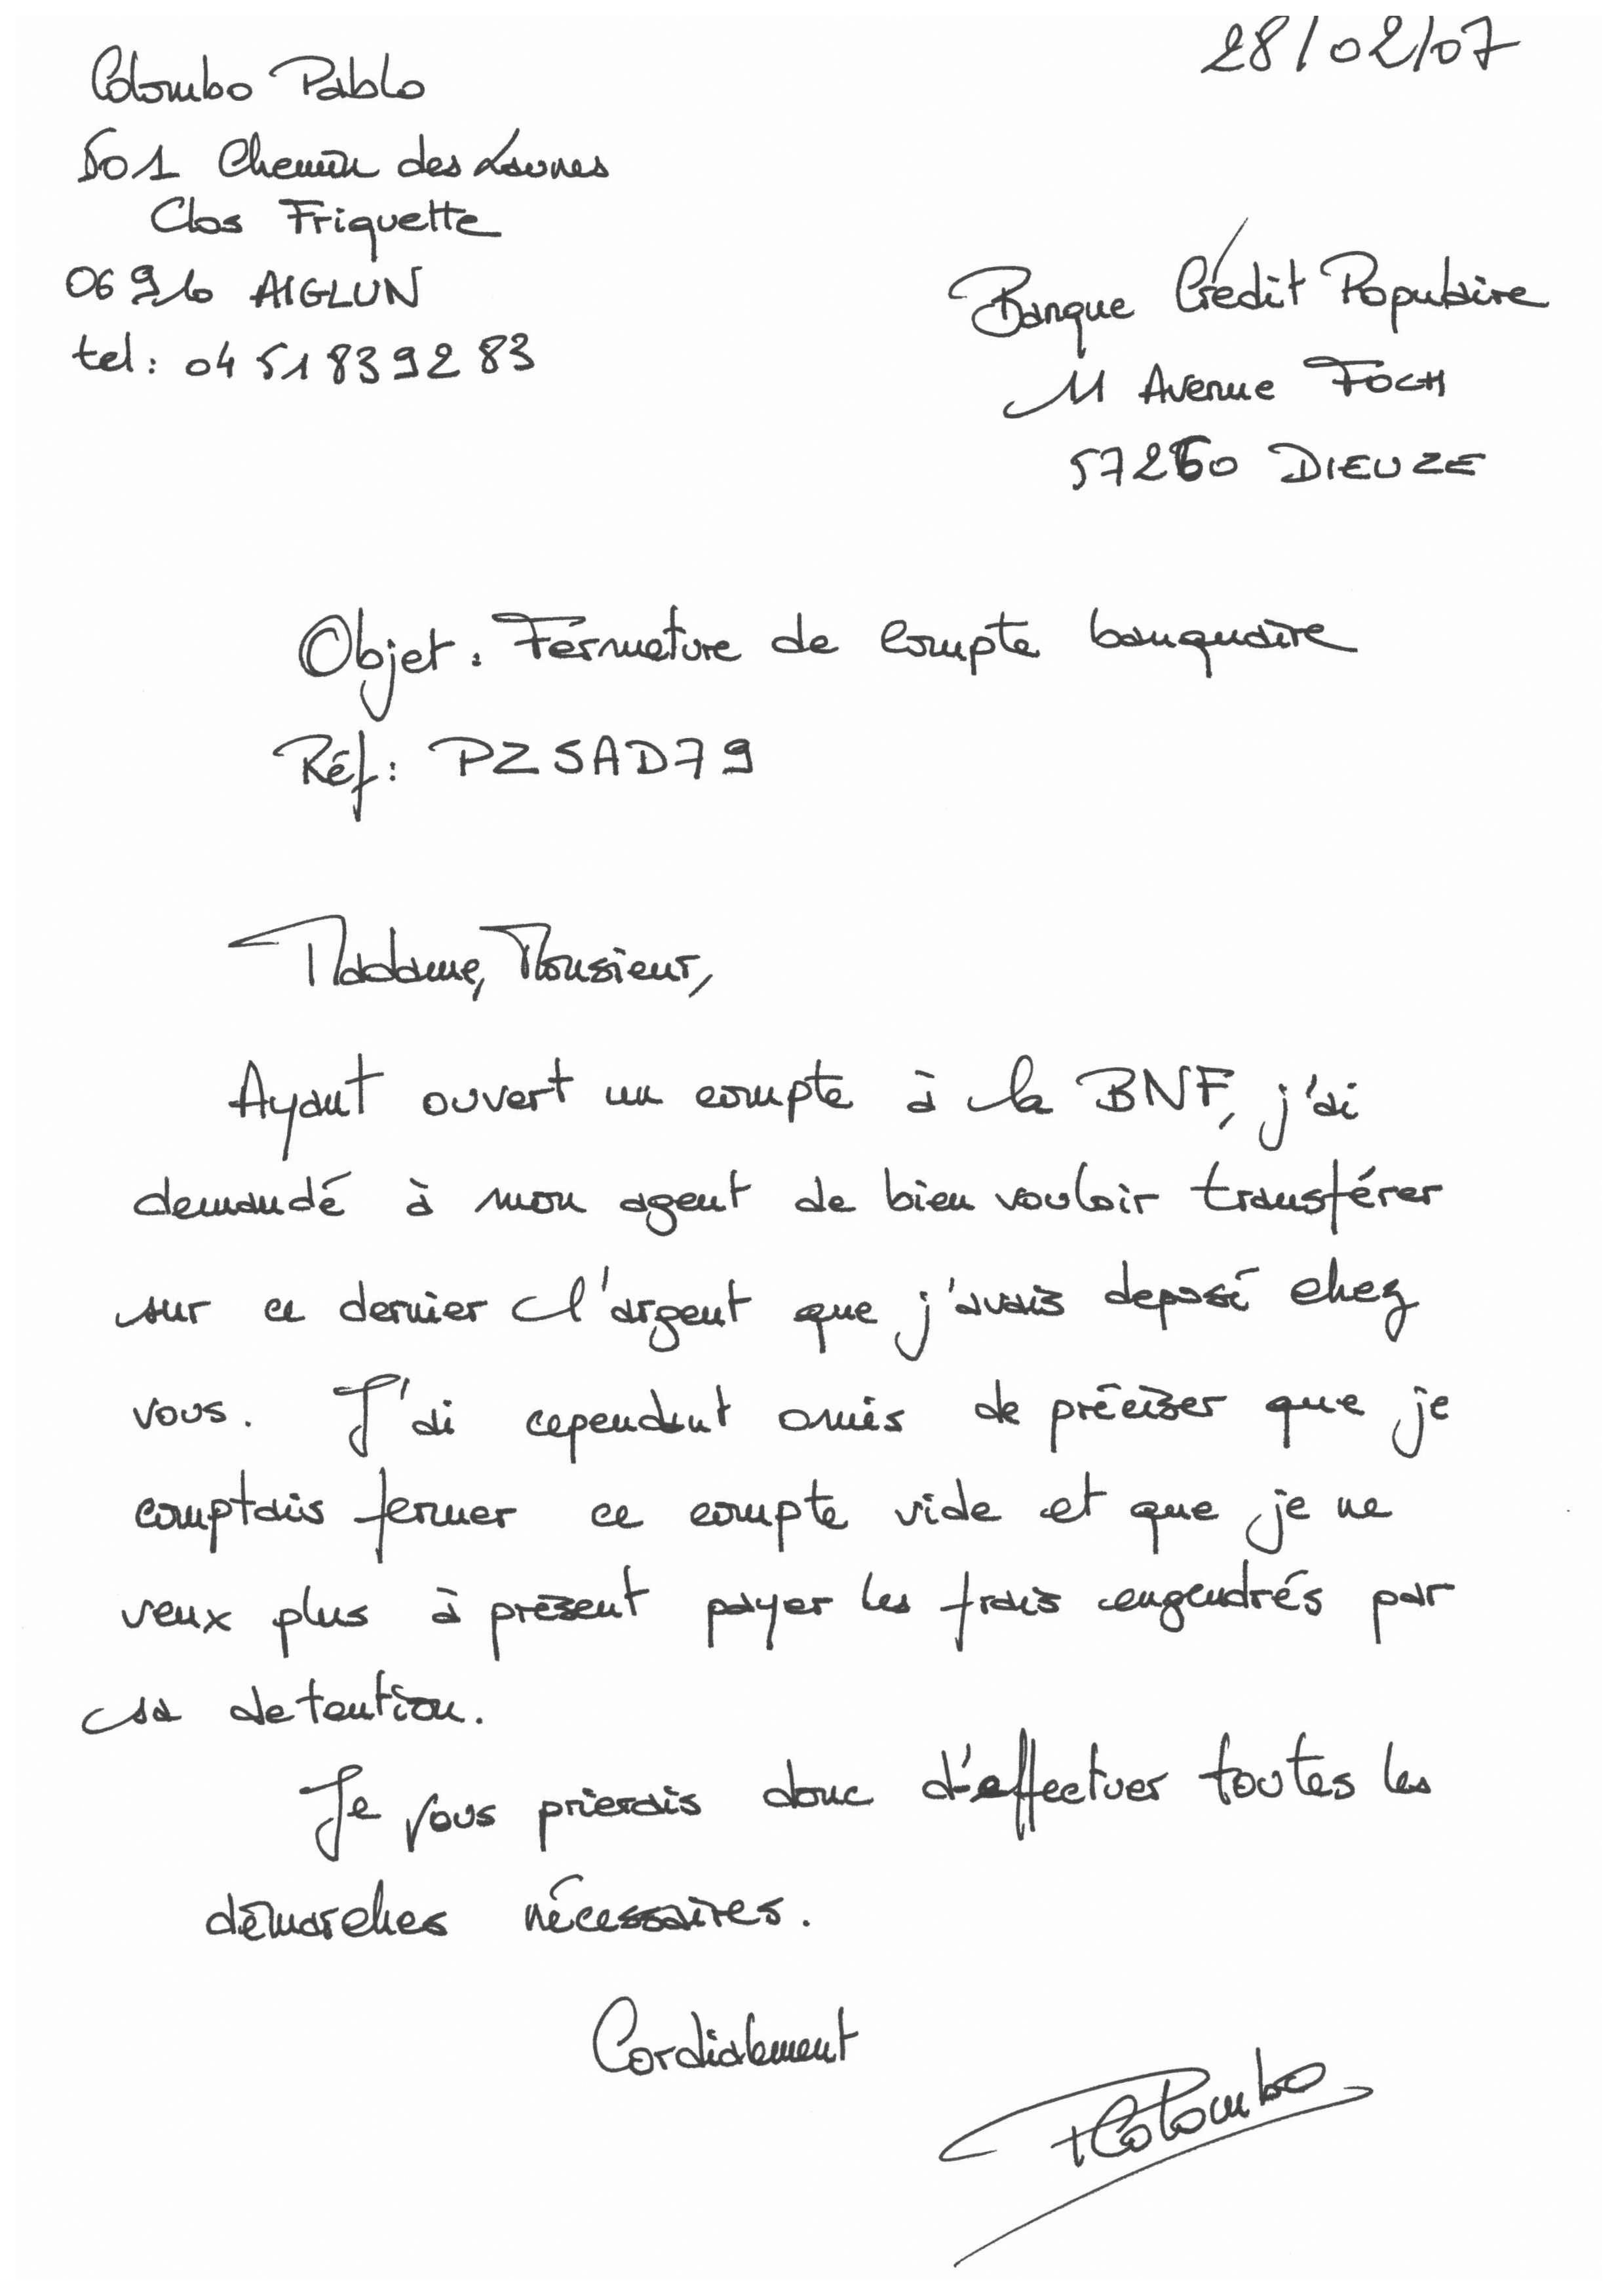 28/02/07
Colombo Pablo
501 Chemin des Launes
Clos Friquette
06910 AIGLUN
tel: 04 51 83 92 83
Banque Crédit Populaire
11 Avenue FOCH
57260 DIEUZE
Objet: Férmeture de compte banquaire
Réf: PZSAD79
Madame, Monsieur,
Ayant ouvert un compte à la BNF, j'ai
demandé à mon agent de bien vouloir transférer
sur ce dernier l'argent que j'avais deposé chez
vous. J'ai cependant omis de préciser que je
comptais fermer ce compte vide et que je ne
veux plus à présent payer les frais engendrés par
sa detention.
Je vous prierais donc d'effectuer toutes les
démarches nécessaires.
Cordialement
PColombo